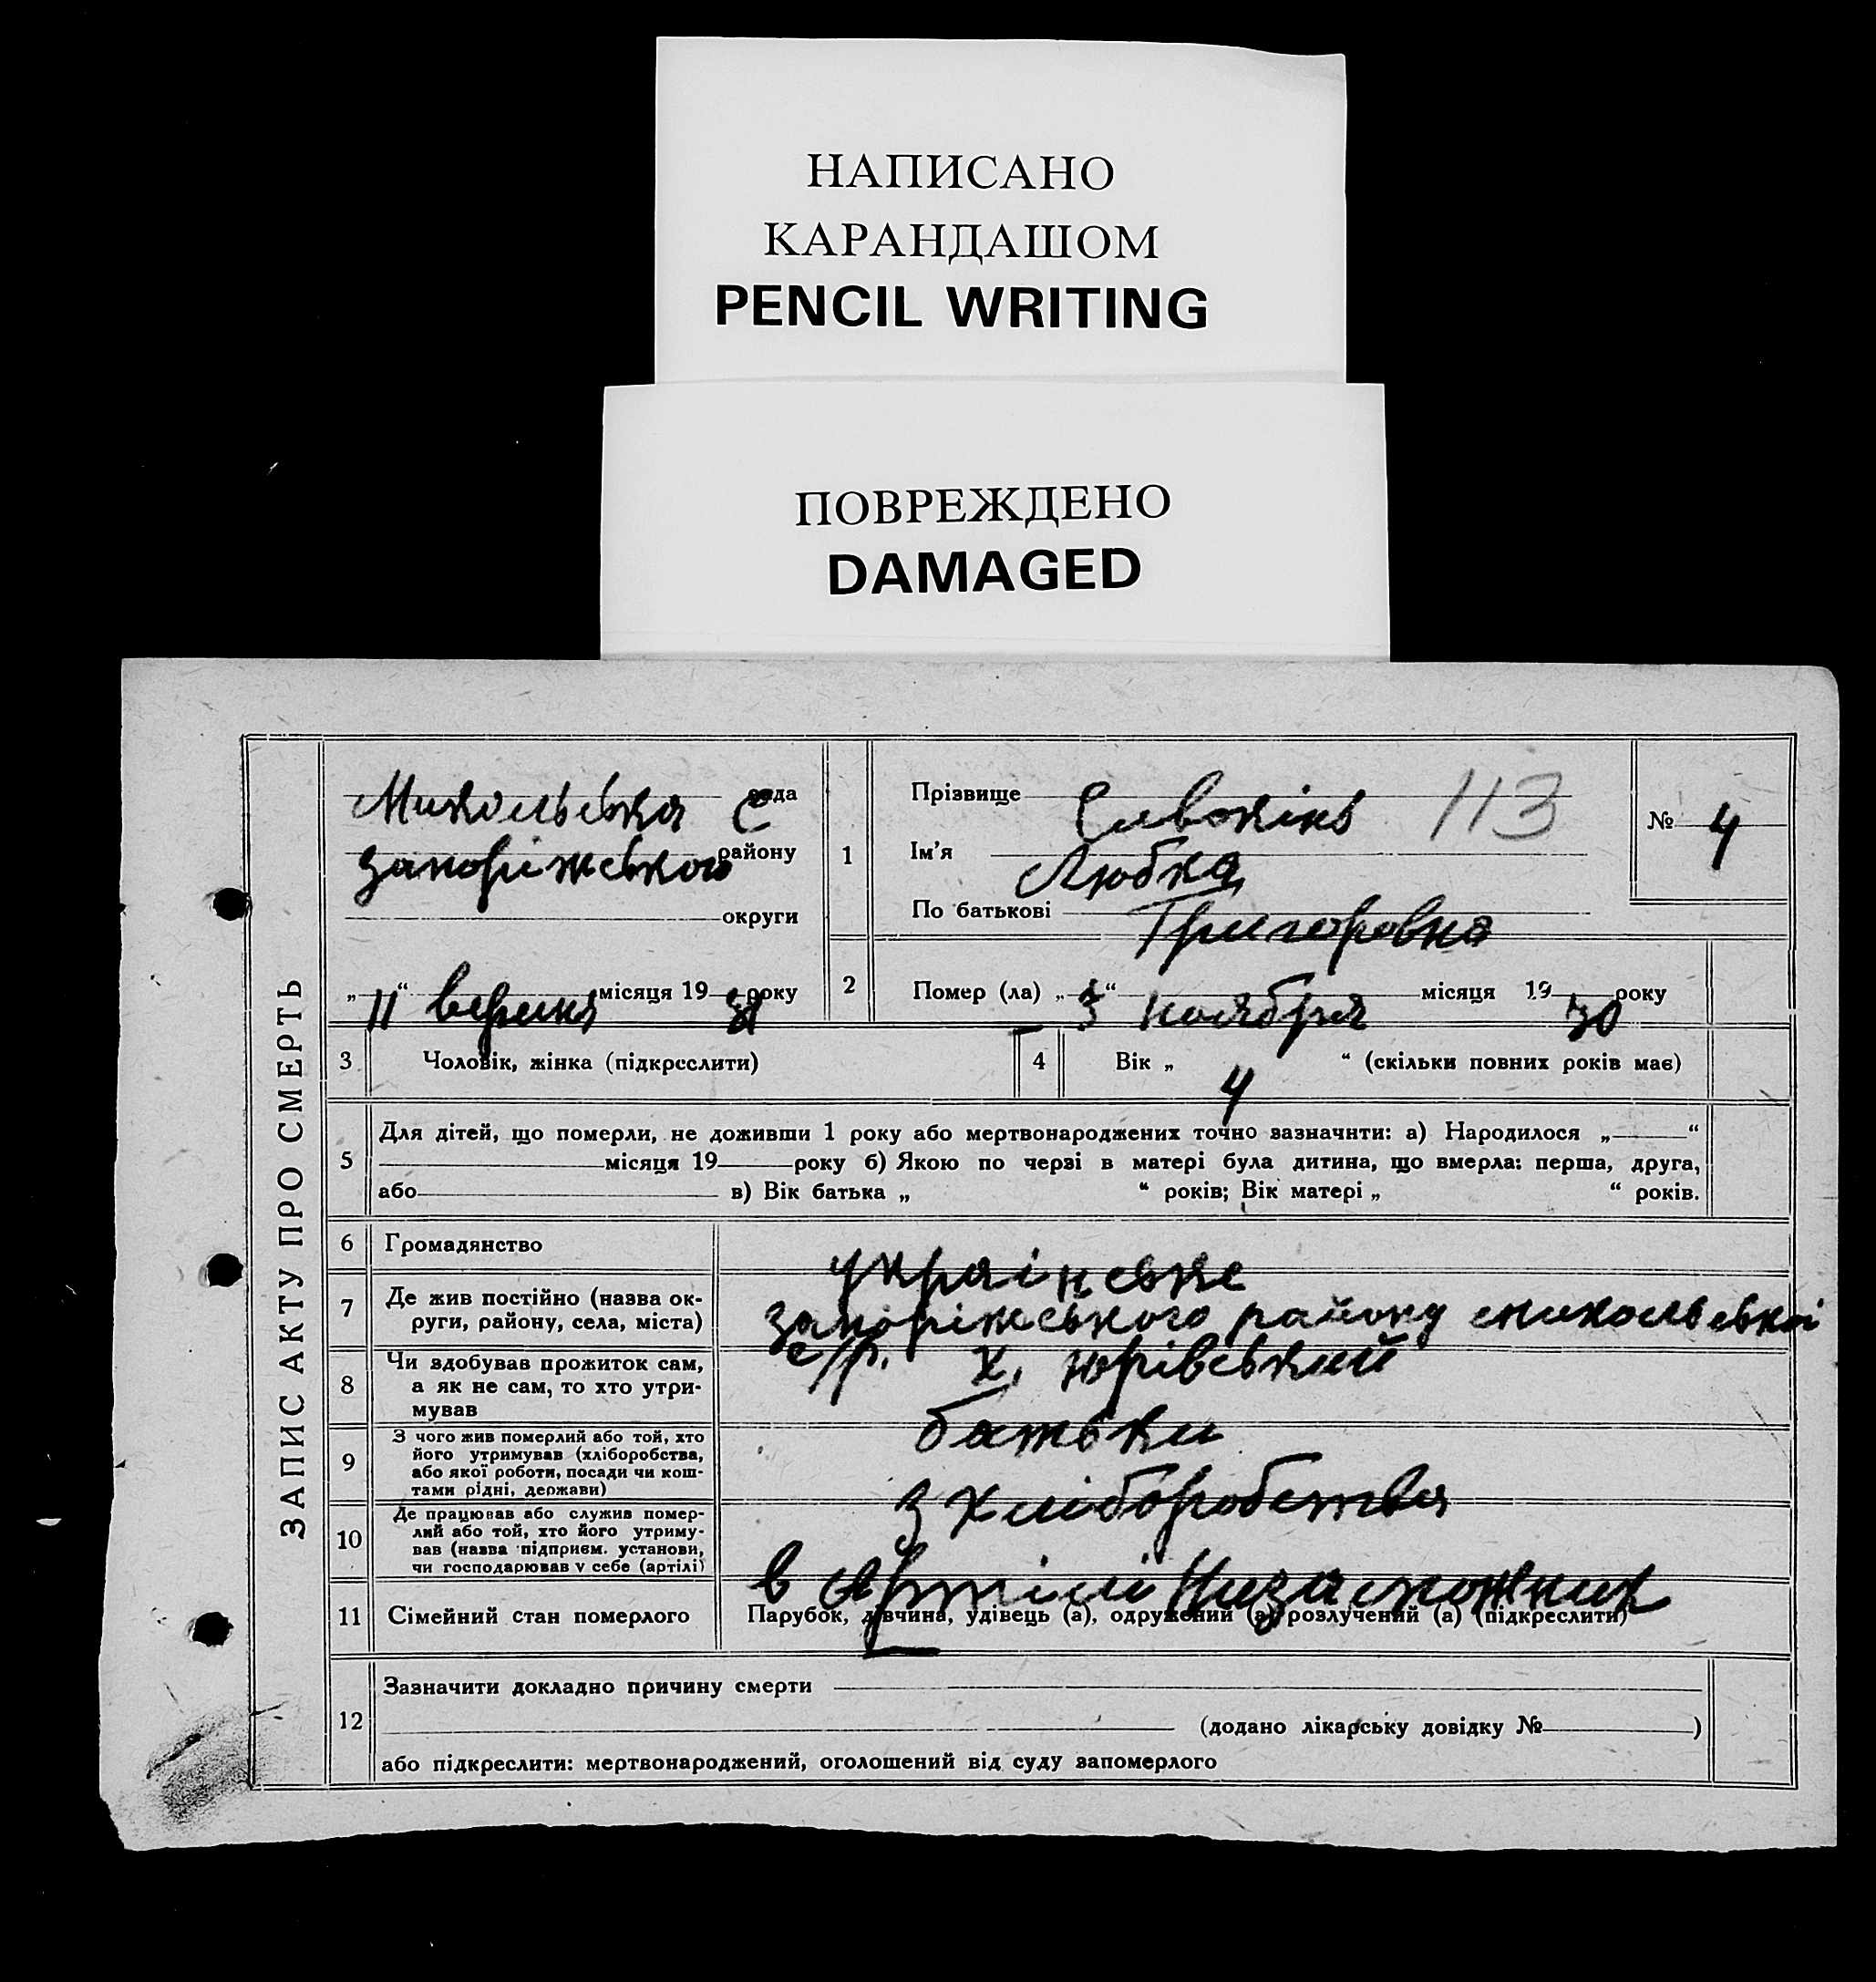 НАПИСАНО
КАРАНДАШОМ
PENCIL WRITING
ПОВРЕЖДЕНО
DAMAGED
ЗАПИС АКТУ ПРО СМЕРТЬ
Микольська рада С
запоріжського району
округи
„11“ вересня місяця 19 31 року
1
Прізвище Сивокінь 113
Ім’я Любка
По батькові Григоровна
№ 4
2
Помер (ла) „3“ ноября місяця 19 30 року
3 Чоловік, жінка (підкреслити)
4 Вік „ 4 “ (скільки повних років має)
5
Для дітей, що померли, не доживши 1 року або мертвонароджених точно зазначити: а) Народилося „ “
місяця 19 року б) Якою по черзі в матері була дитина, що вмерла: перша, друга,
або в) Вік батька „ “ років; Вік матері „ “ років.
6 Громадянство
українське
7 Де жив постійно (назва ок-
руги, району, села, міста)
запоріжського району микольської
с/р. х. юрівський
8 Чи здобував прожиток сам,
а як не сам, то хто утри-
мував
батьки
9 З чого жив померлий або той, хто
його утримував (хліборобства,
або якої роботи, посади чи кош-
тами рідні, держави)
з хліборобства
10 Де працював або служив помер-
лий або той, хто його утриму-
вав (назва підприєм. установи,
чи господарював у себе (артілі)
в Артілі Низаможник
11 Сімейний стан померлого
Парубок, дівчина, удівець (а), одружений (а) розлучений (а) (підкреслити)
12
Зазначити докладно причину смерти
(додано лікарську довідку № )
або підкреслити: мертвонароджений, оголошений від суду запомерлого